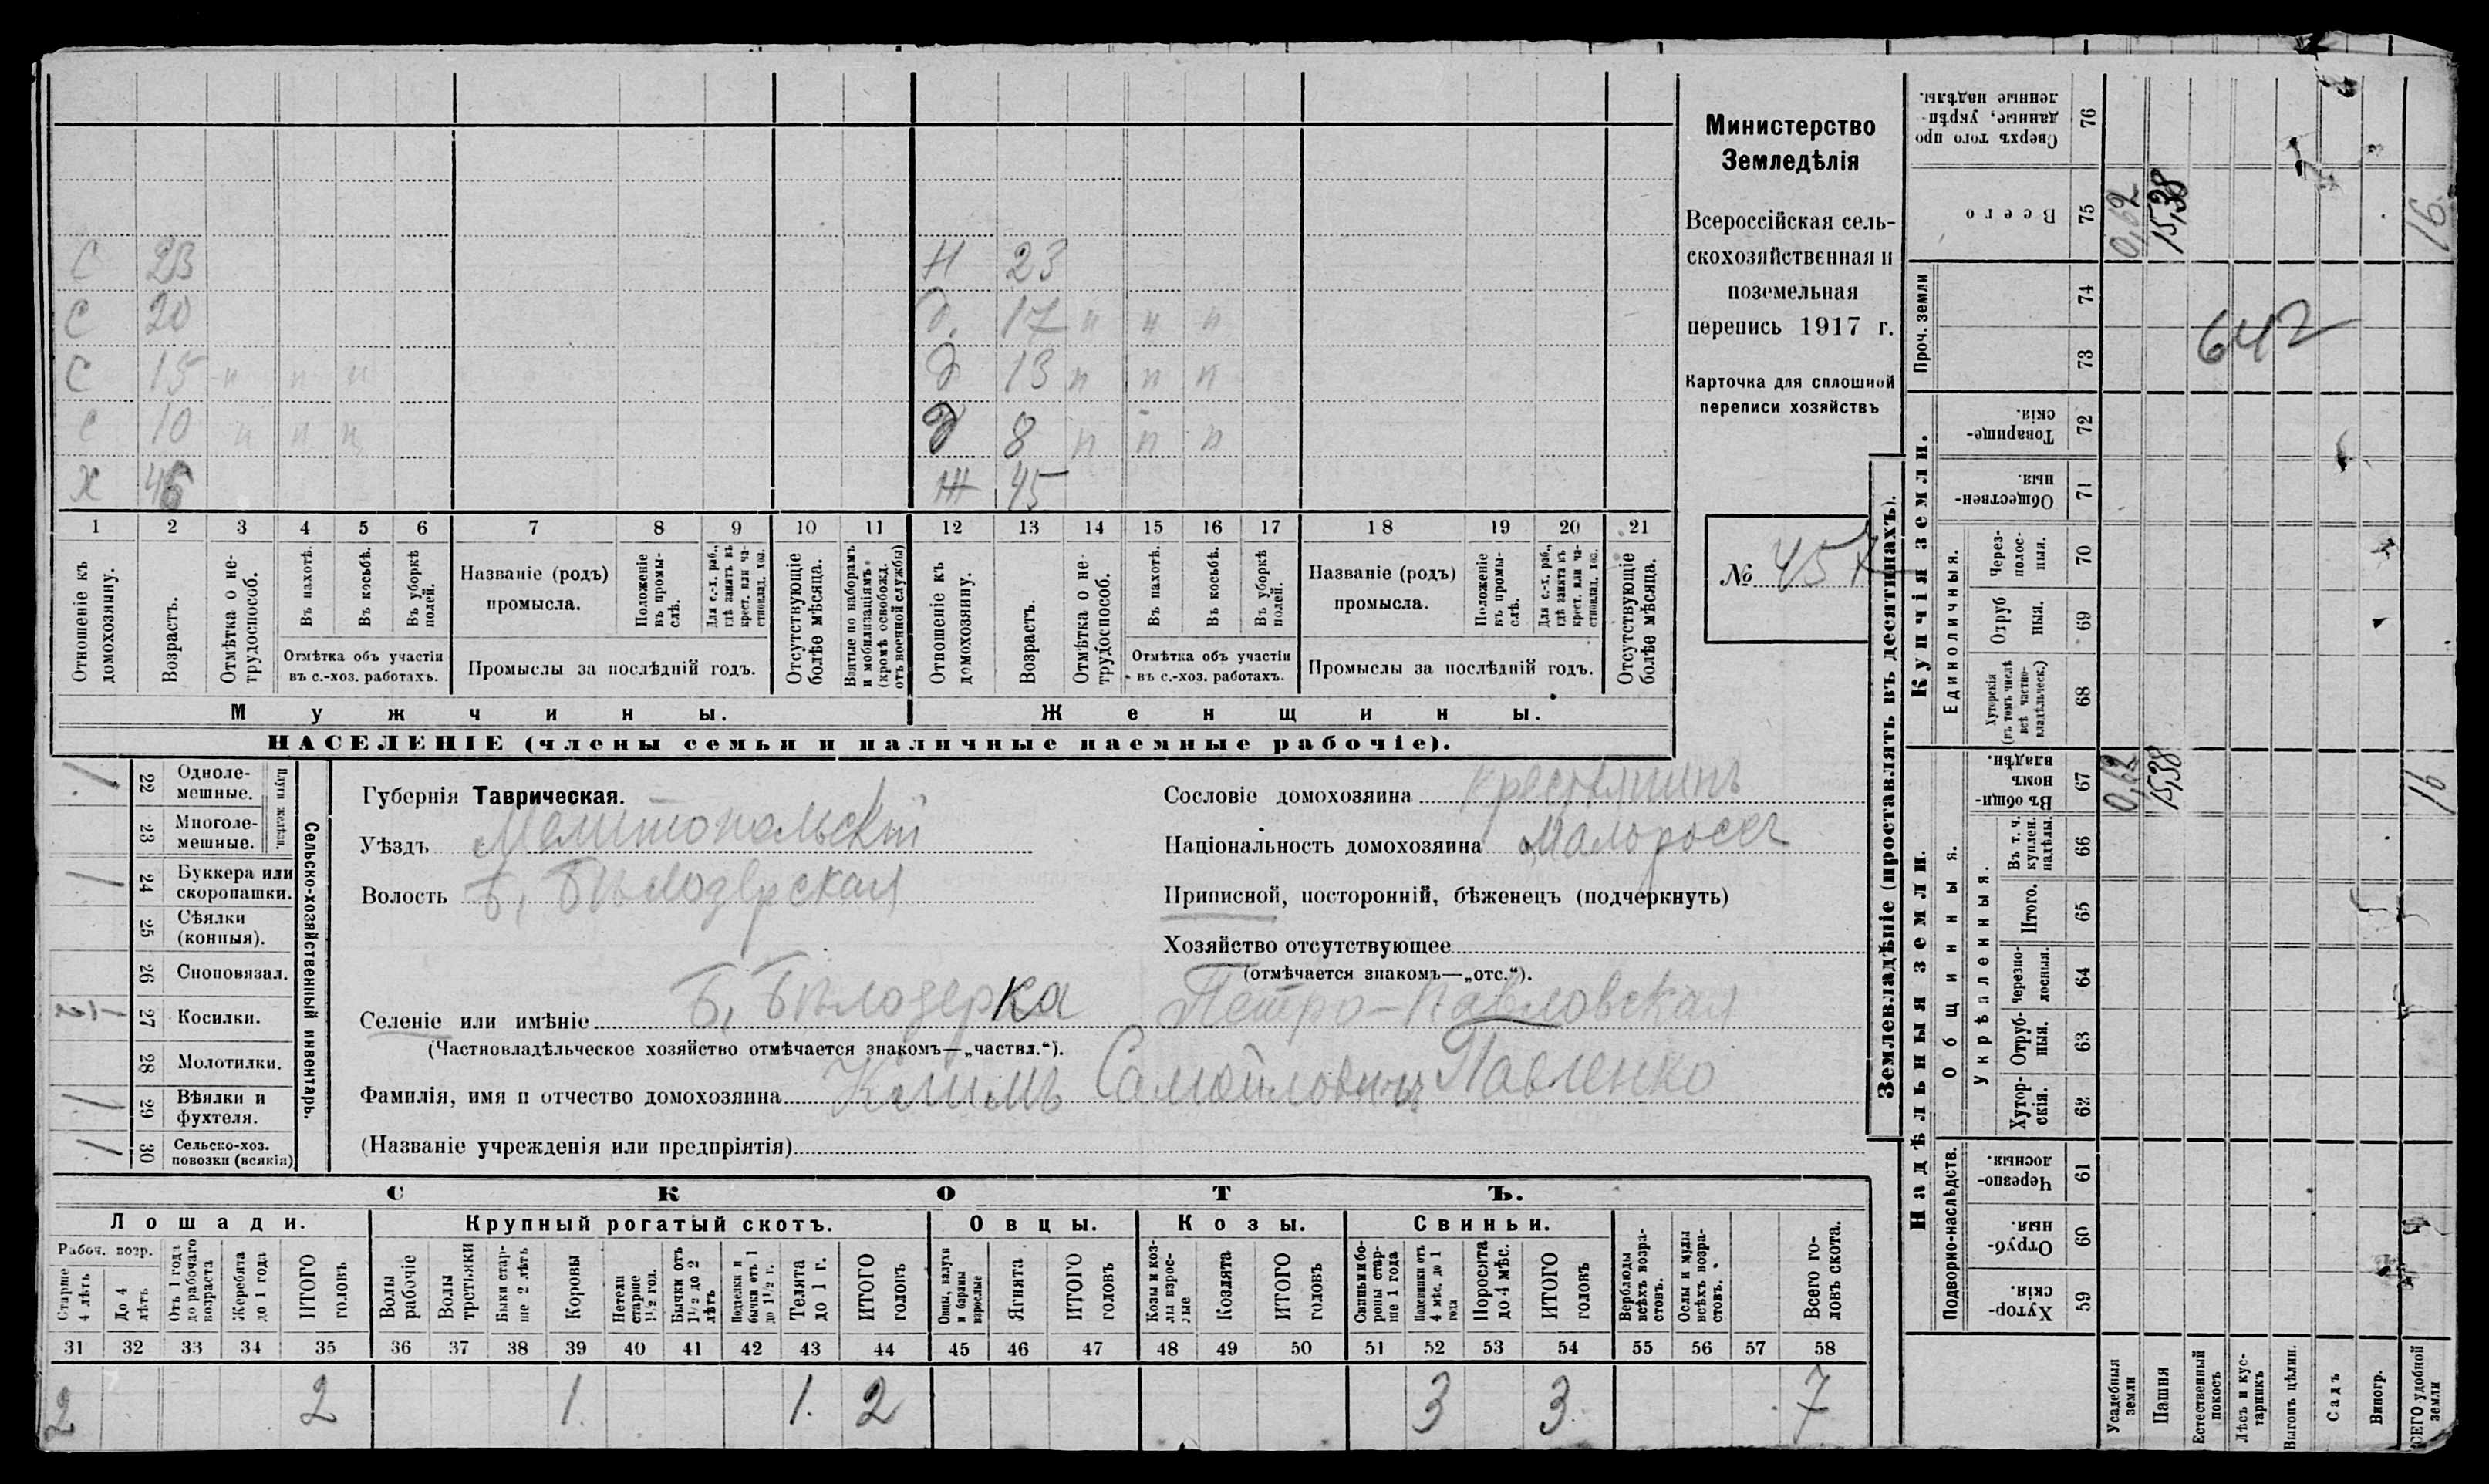 Министерство
Земледѣлія
Всероссійская сель-
скохозяйственная и
поземельная
перепись 1917 г.
Карточка для сплошной
переписи хозяйствъ
№ 457
С 23
С 20
С 15 н н н
С 10 н н н
Х 46
Н 23
д. 17 н н н
д 13 н н н
д 8 н н н
Ж 45
1 2 3 4 5 6 7 8 9 10 11 12 13 14 15 16 17 18 19 20 21
Отношеніе къ домохозяину.
Возрастъ.
Отмѣтка о не-
трудоспособ.
Въ пахотѣ.
Въ косьбѣ.
Въ уборкѣ
полей.
Отмѣтка объ участіи
въ с.-хоз. работахъ.
Названіе (родъ)
промысла.
Положеніе
въ промы-
слѣ.
Для с.-х. раб.,
гдѣ занятъ въ
крест. или ча-
стновлад. хоз.
Промыслы за послѣдній годъ.
Отсутствующіе
болѣе мѣсяца.
Взятые по наборамъ
и мобилизаціямъ
(кромѣ освобожд.
отъ военной службы)
Отношеніе къ
домохозяину.
Возрастъ.
Отмѣтка о не-
трудоспособ.
Въ пахотѣ.
Въ косьбѣ.
Въ уборкѣ
полей.
Отмѣтка объ участіи
въ с.-хоз. работахъ.
Названіе (родъ)
промысла.
Положеніе
въ промы-
слѣ.
Для с.-х. раб.,
гдѣ занята въ
крест. или ча-
стновлад. хоз.
Промыслы за послѣдній годъ.
Отсутствующіе
болѣе мѣсяца.
Мужчины.
Женщины.
НАСЕЛЕНІЕ (члены семьи и наличные наемные рабочіе).
Сельско-хозяйственный инвентарь.
Плуги желѣзн.
1 22 Одноле-
мешные.
23 Многоле-
мешные.
1 24 Буккера или
скоропашки.
25 Сѣялки
(конныя).
26 Сноповязал.
1/2 27 Косилки.
28 Молотилки.
1 29 Вѣялки и
фухтеля.
1 30 Сельско-хоз.
повозки (всякія)
Губернія Таврическая.
Уѣздъ Мелитопольскій
Волость Б, Бѣлозерская
Сословіе домохозяина крестьянинъ
Національность домохозяина Малоросс
Приписной, посторонній, бѣженецъ (подчеркнуть)
Хозяйство отсутствующее
(отмѣчается знакомъ—„отс.“).
Селеніе или имѣніе Б, Бѣлозерка Петро-Павловская
(Частновладѣльческое хозяйство отмѣчается знакомъ—„частвл.“).
Фамилія, имя и отчество домохозяина Климъ Самойловичъ Павленко
(Названіе учрежденія или предпріятія)
СКОТЪ.
Лошади.
Крупный рогатый скотъ.
Овцы.
Козы.
Свиньи.
Рабоч. возр.
Старше
4 лѣтъ
До 4
лѣтъ
Отъ 1 года
до рабочаго
возраста
Жеребята
до 1 года
ИТОГО
головъ
Волы
рабочіе
Волы
третьяки
Быки стар-
ше 2 лѣтъ
Коровы
Нетели
старше
1½ год.
Бычки отъ
1½ до 2
лѣтъ
Подтелки и
бычки отъ 1
до 1½ г.
Телята
до 1 г.
ИТОГО
головъ
Овцы, валухи
и бараны
взрослые
Ягнята
ИТОГО
головъ
Козы и коз-
лы взрос-
лые
Козлята
ИТОГО
головъ
Свиньи и бо-
ровы стар-
ше 1 года
Подсвинки отъ
4 мѣс. до 1
года
Поросята
до 4 мѣс.
ИТОГО
головъ
Верблюды
всѣхъ возра-
стовъ.
Ослы и мулы
всѣхъ возра-
стовъ.
Всего го-
ловъ скота.
31 32 33 34 35 36 37 38 39 40 41 42 43 44 45 46 47 48 49 50 51 52 53 54 55 56 57 58
2 2 1. 1. 2 3 3. 7
Землевладѣніе (проставлять въ десятинахъ).
Сверхъ того про
данные, укрѣп-
ленные надѣлы.
76
Всего
75 0,62 15,38 16
Проч. земли
74
73
642
Купчія земли.
Товарище-
скія.
72
Обществен-
ныя.
71
Единоличныя.
Через-
полос-
ныя.
70
Отруб
ныя.
69
Хуторскія
(въ томъ числѣ
всѣ частно-
владѣльческ.)
68
Надѣльныя земли.
Общинныя.
Въ общин-
номъ
владѣн.
67 0,62 15,38 16
Въ т. ч.
куплен.
надѣлы.
66
Укрѣпленныя.
Итого.
65
Черезпо-
лосныя.
64
Отруб-
ныя.
63
Хутор-
скія.
62
Подворно-наслѣдств.
Черезпо-
лосныя.
61
Отруб-
ныя.
60
Хутор-
скія.
59
Усадебныя
земли
Пашня
Естественный
покосъ
Лѣсъ и кус-
тарникъ
Выгонъ цѣлин.
Садъ
Виногр.
ВСЕГО удобной
земли